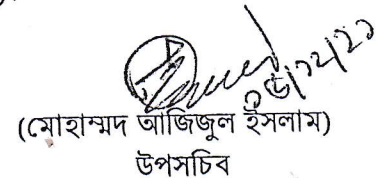 (মোহাম্মদ আজিজুল ইসলাম)
উপসচিব